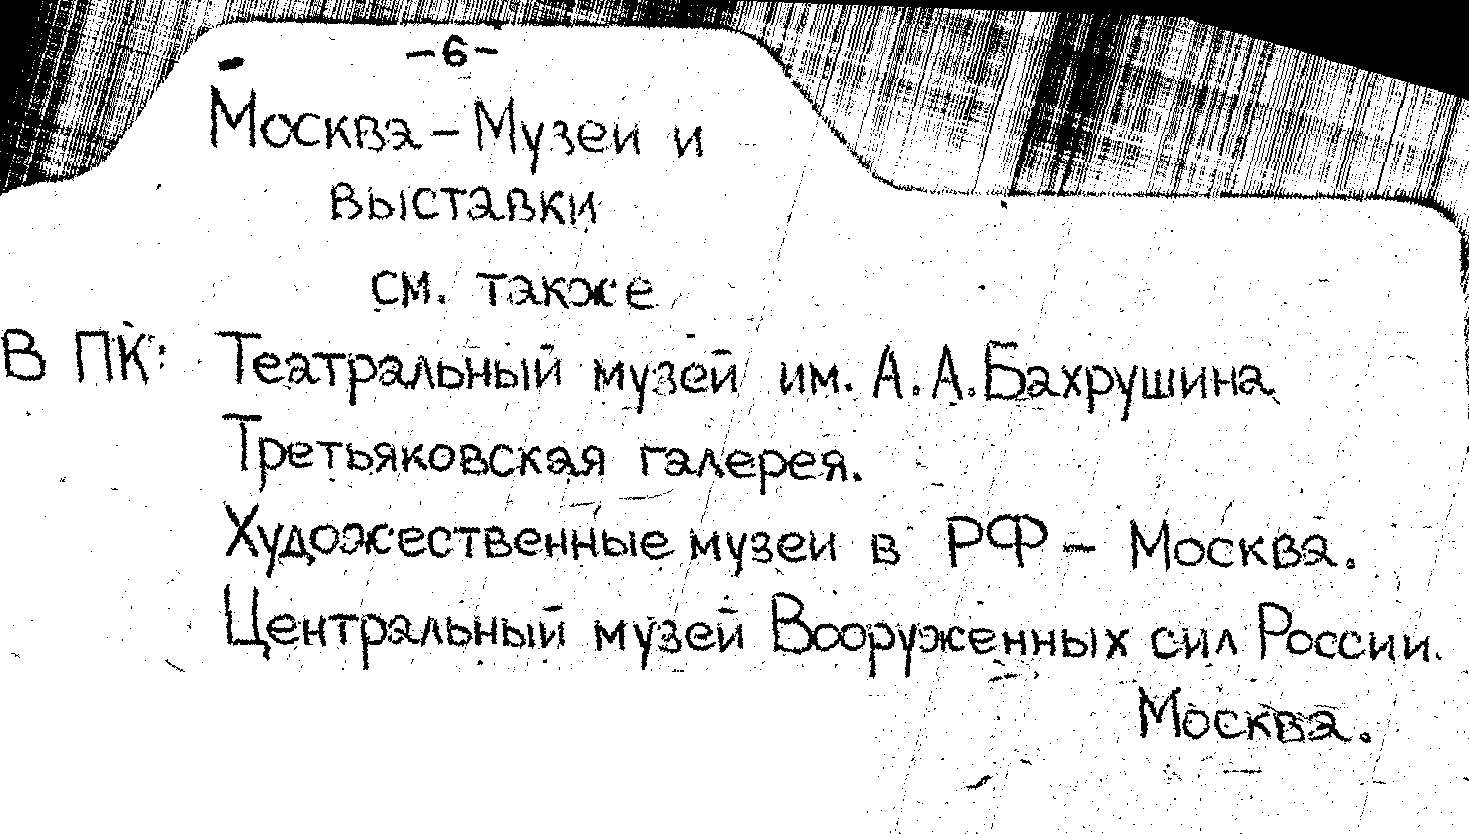 -6-
Москва - Музеи и
выставки
см. также
В ПК: Театральный музей им. А.А. Бахрушина
Третьяковская галерея.
Художественные музеи в РФ - Москва.
Центральный музей Вооруженных сил России.
Москва.